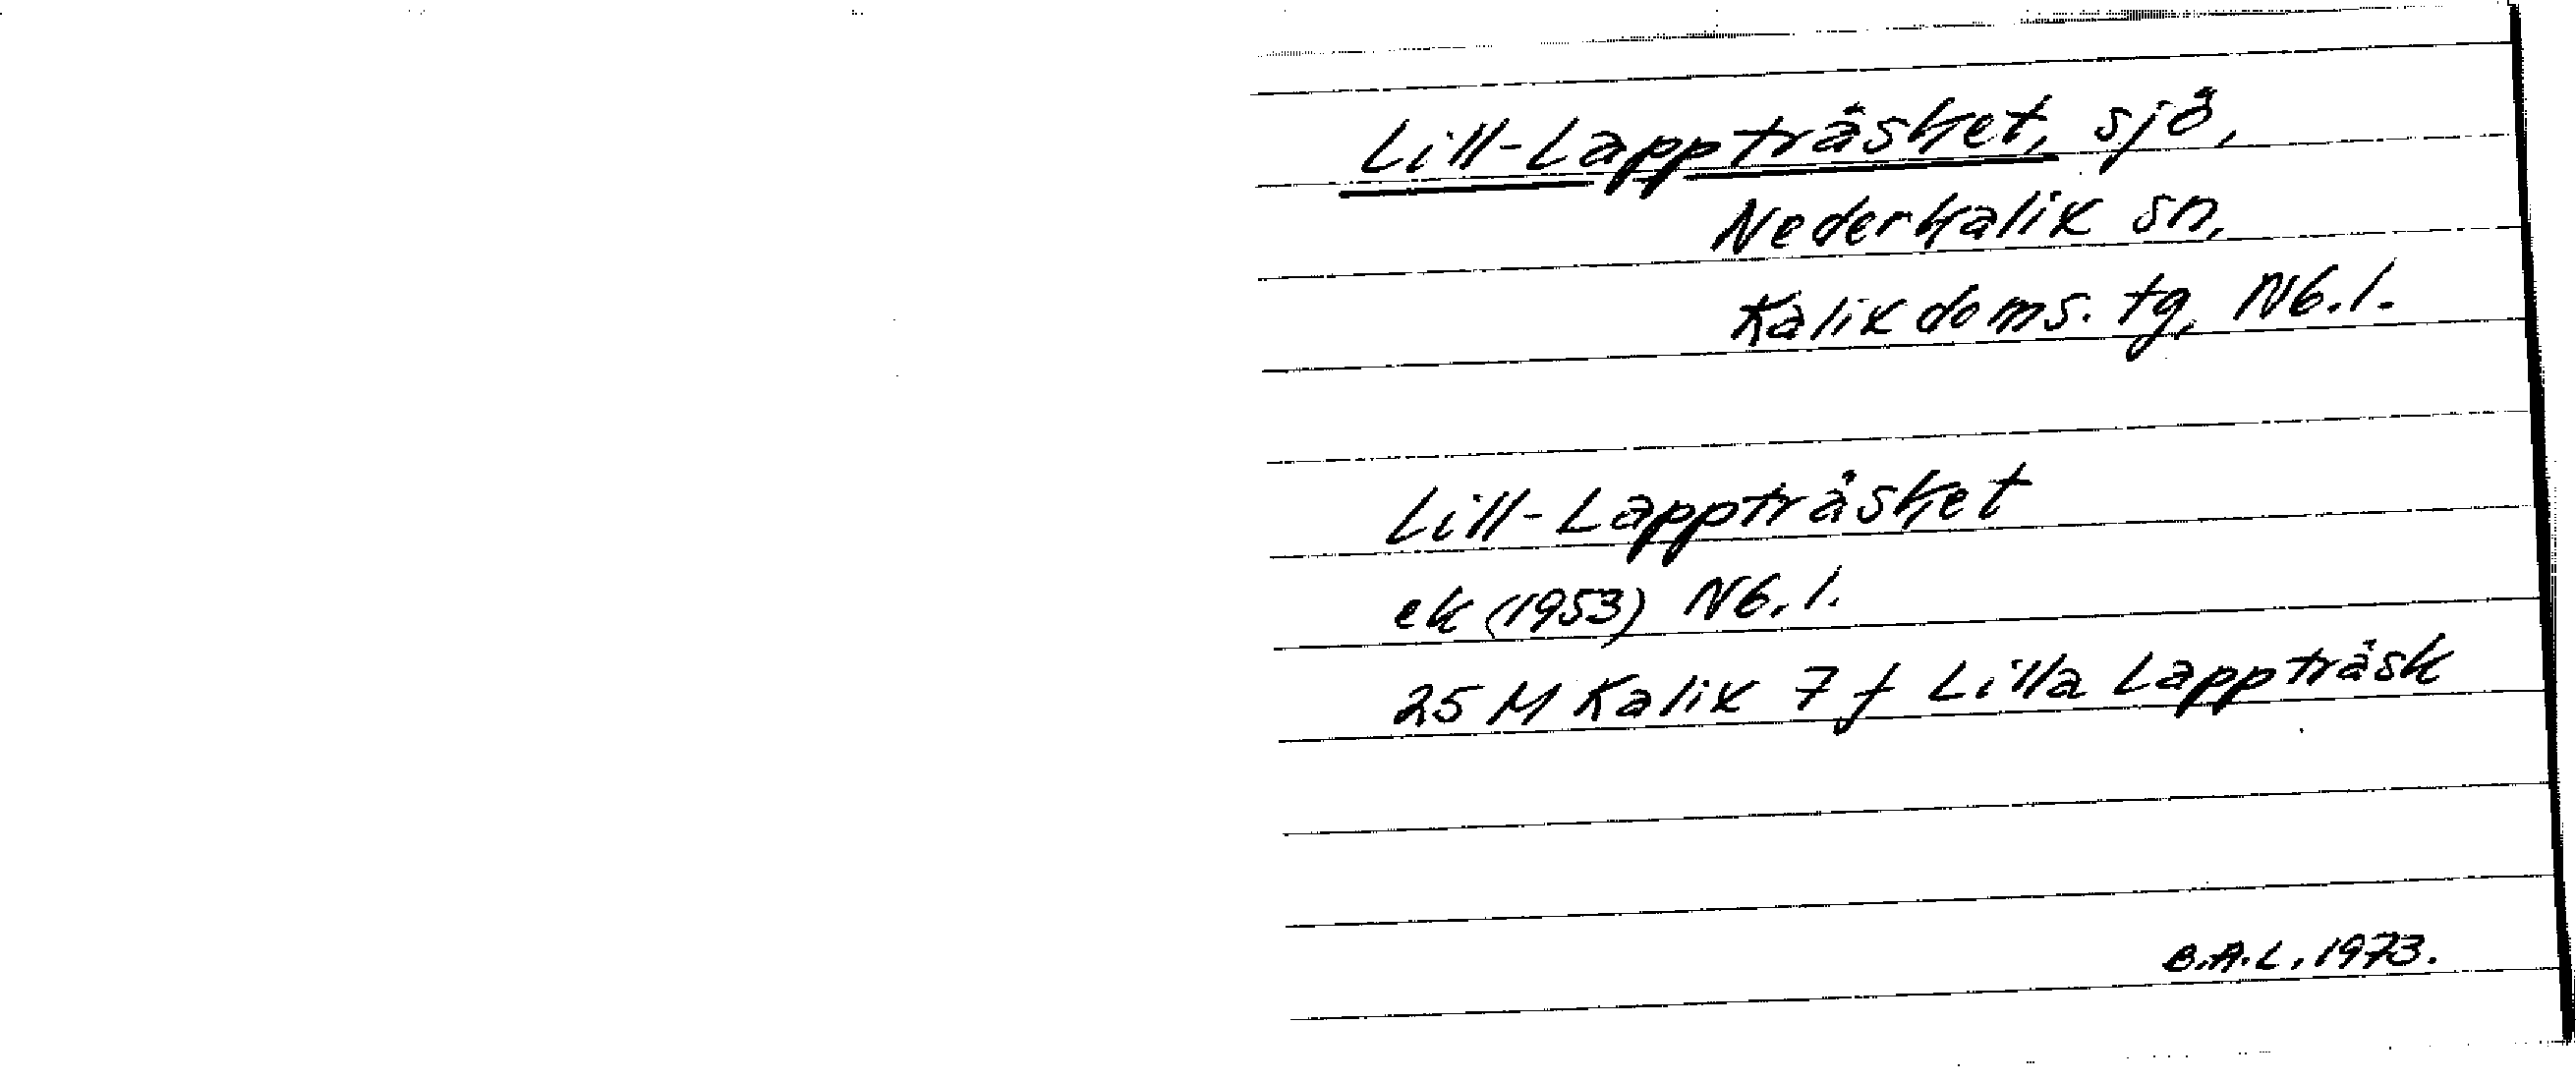 Lill-Lappträsket, sjö,
Nederkalix sn,
Kalix doms. tg, Nb. l.
Lill-Lappträsket
ek (1953) Nb. l.
25 M Kalix 7 f Lilla Lappträsk
B.A.L. 1973.